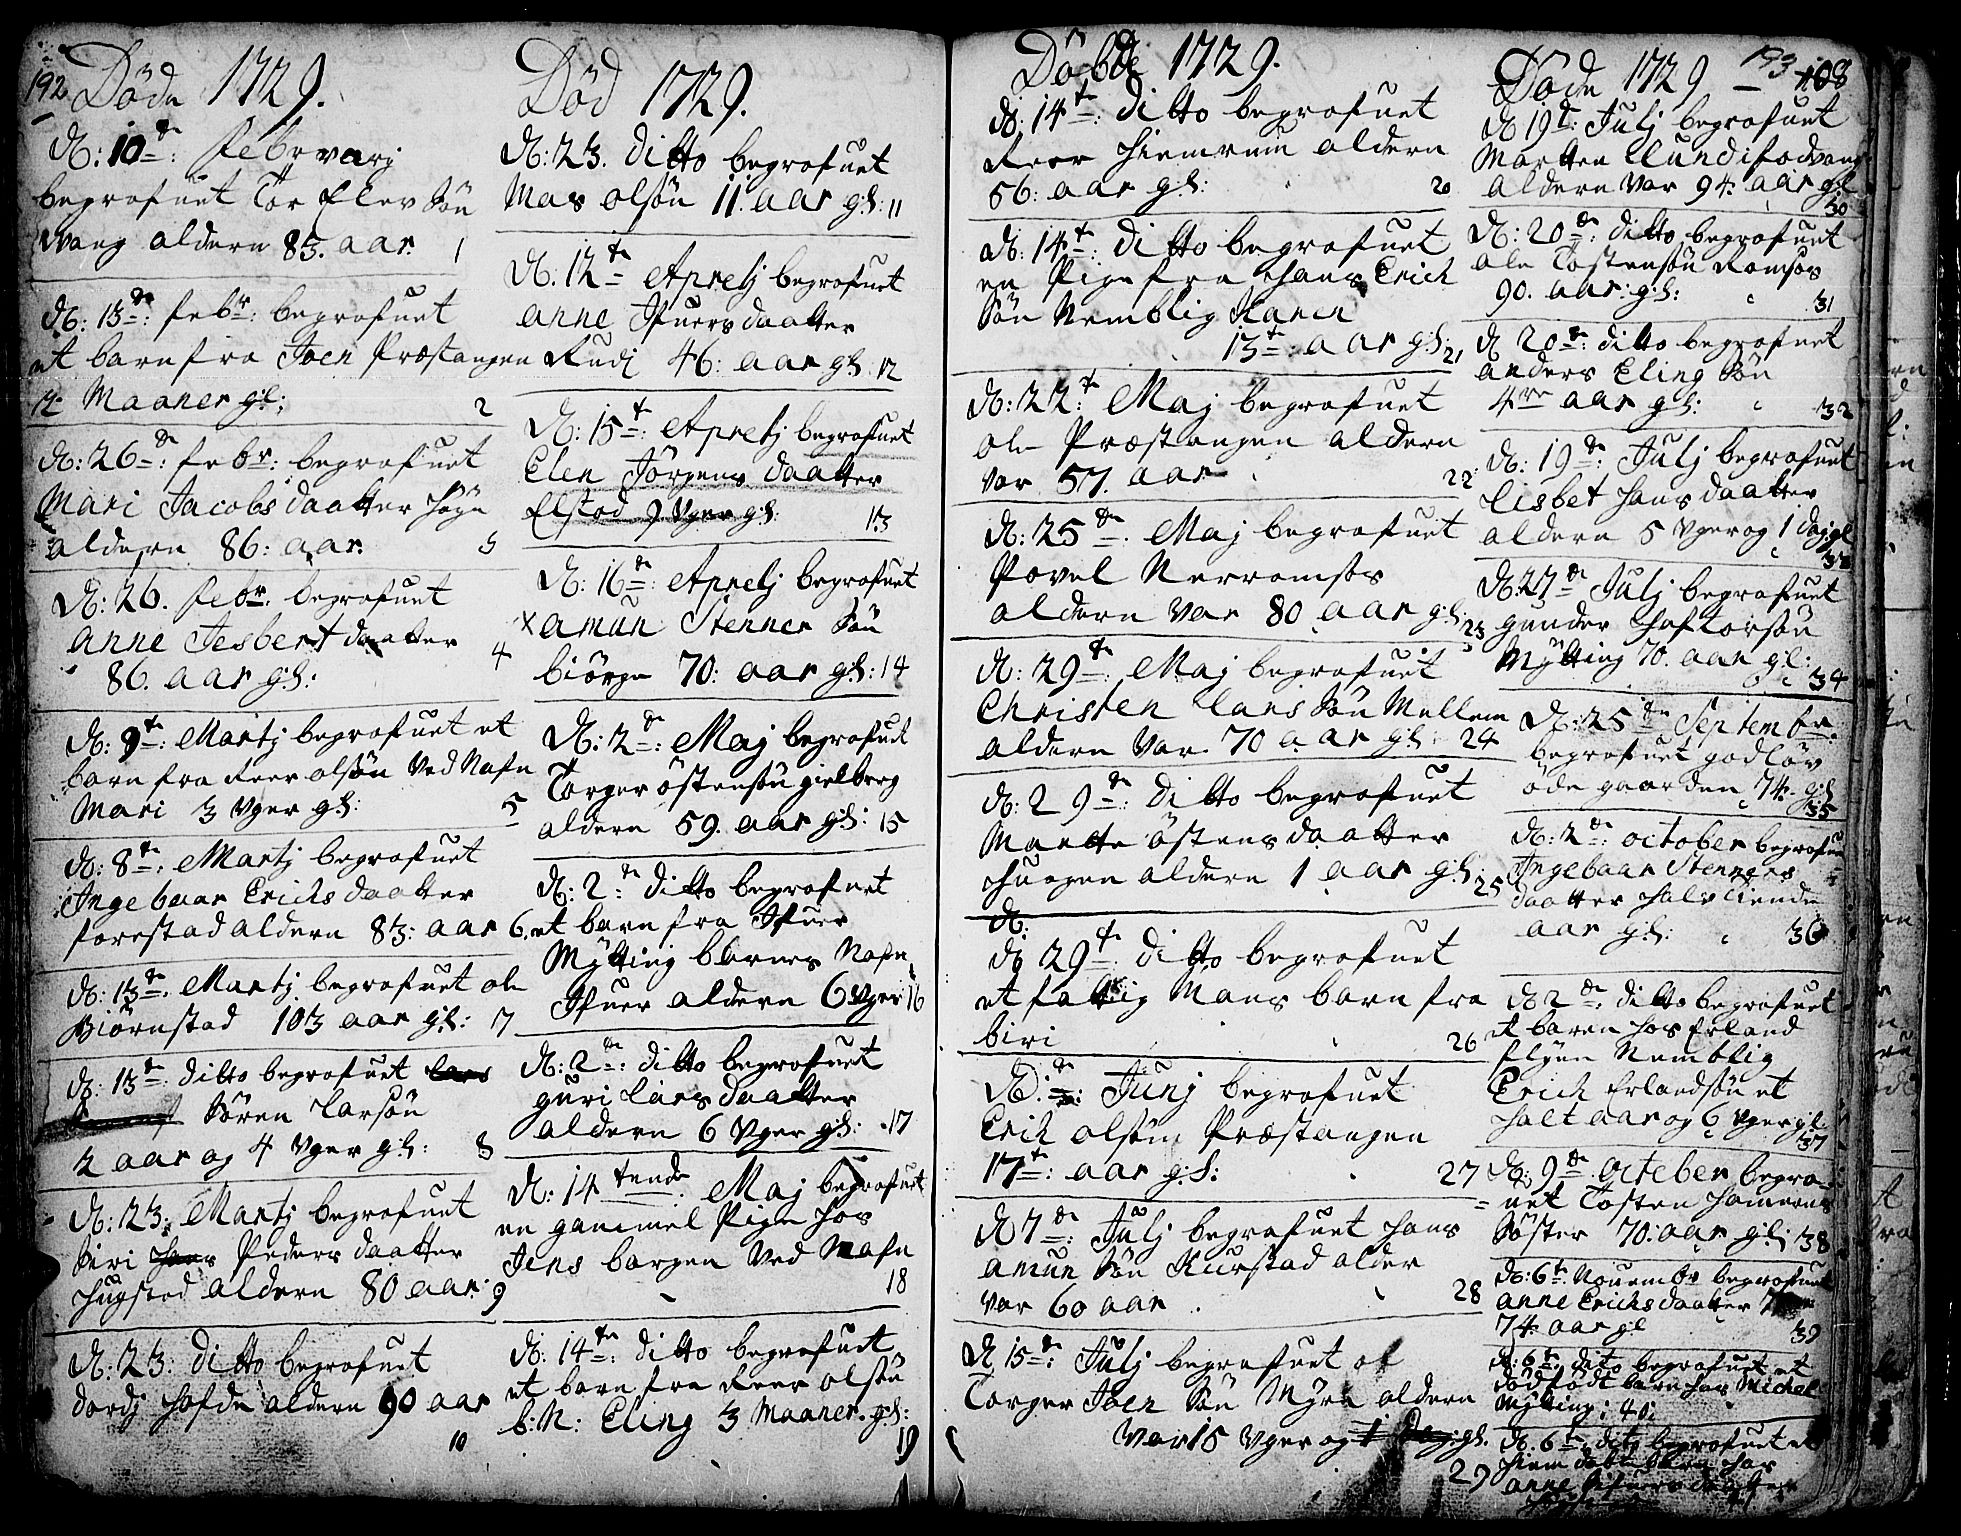 192
Döde 1729.
d: 10de: Februarj
begrafuet Tor Elev Sön
Vang aldern 83. aar. 1
d: 13de: febr: begrafuet
et barn fra Joen Præstangen
12 Maaner gl: 2
d: 26de: febr: begrafuet
Mari Jacobs daatter
aldern 86: aar. 3
d: 26. febr: begrafuet
anne Jesbert daatter 4
86. aar gl:
d: 9te: Martj begrafuet et
barn fra Peer olsön Ved Nafn
Mari 3 Vger gl: 5
d: 8te: Martj begrafuet
Ingebaar Erichs daatter
forestad aldern 83: aar 6.
d: 13de: Martj begrafuet ole
Biörnstad 103 aar gl: 7
d: 13de: ditto begrafuet
Sören Larsön
2 aar og 4 Vger gl: 8
d: 23: Martj begrafuet
Siri Peders daatter
Hugstad aldern 80 aar: 9
d: 23: ditto begrafuet
dordj hafde aldern 90 aar
10
Död 1729.
d: 23. ditto begrafuet
Mas olsön 11. aar gl: 11
d: 12te Apretj begrafuet
anne Ifuers daatter
Rudj 46: aar gl: 12
d: 15te: Apretj begrafuet
Elen Jörgens daatter
Elstad 9 Vger gl: 13
d: 16de: Apretj begrafuet
x amun Stenner Sön
biörge 70: aar gl: 14
d: 2de: Maj begrafuet
Torger östensön gielberg
aldern 59. aar gl: 15
d: 2:de ditto begrafuet
et barn fra Ifuer
Mÿtting barnes Nafn
Ifuer aldern 6 Vger 16
d: 2de: ditto begrafuet
guri Lars daatter
aldern 6 Vger gl: 17
d: 14 tende Maj begrafuet
en gammel Pige hos
Jens bargen Ved Nafn
18
d: 14te: ditto begrafuet
et barn fra Peer olsön
b: N: Eling 3 Maaner. gl:
19
Döbde 1729.
d: 14te: ditto begrafuet
Peer Hiemrum aldern
56: aar gl: 20
d: 14te: ditto begrafuet
en Pige fra Hans Erich
Sön Nemblig Karen
13te: aar gl: 21
d: 22:te Maj begrafuet
ole Præstangen aldern
Var 57. aar 22
d: 25de: Maj begrafuet
Povel Nerromsos
aldern Var 80 aar gl: 23
d: 29de: Maj begrafuet
Christen Lars Sön Mellem
aldern Var 70 aar gl: 24
d: 29de: ditto begrafuet
Marette östens daatter
Haagen aldern 1 aar gl: 25
d:
d: 29te: ditto begrafuet
et fattig Mans barn fra
biri 26
d: de: Junj begrafuet
Erik olsön Præstangen
17te: aar gl: 27
d 7de: Julj begrafuet Hans
amun Sön Kurstad alder
Var 60 aar 28
d 15de: Julj begrafuet af
Torger Joen Sön Myra aldern
Var 15 Vger og 1 dag gl.
29
193
108
Döde 1729
d 19de: Julj begrafuet
Martten Lundj
aldern Var 94. aar gl
30
d: 20de: ditto begrafuet
ole Tostensön Romsos
90. aar: gl: 31
d 20de: ditto begrafuet
anders Eling Sön
4re aar gl: 32
d: 19de: Julj begrafuet
Lisbet Hans daatter
aldern 5 Vger og 1 dag gl
33
d: 27de Julj begrafuet
gunder Haftorsön
Mÿtting 70. aar gl:
34
d: 25de Septembr.
begrafuet godlöv
öde gaarden 74. gl
35
d: 2de: october begrafuet
Ingebaar Stenners
daatter halv tiende
aar gl: 36
d 2de: ditto begrafuet
et baren hos Erland
flÿen Nemblig
Erich Erlandsön et
halt aar og 6 Vger gl
37
d: 9de october begra=
=uet Tosten Hamerns
Söster 70: aar gl: 38
d: 6te: Nouembr begrafuet
anne Erichs daatter
74 aar gl 39
d: 6te: dito begrafuet et
dödfödt barn hos Michel
Mÿtting: 40:
d. 6te: dito begrafuet et
hiem döbt barn hos
anne Ifuers daatter
41